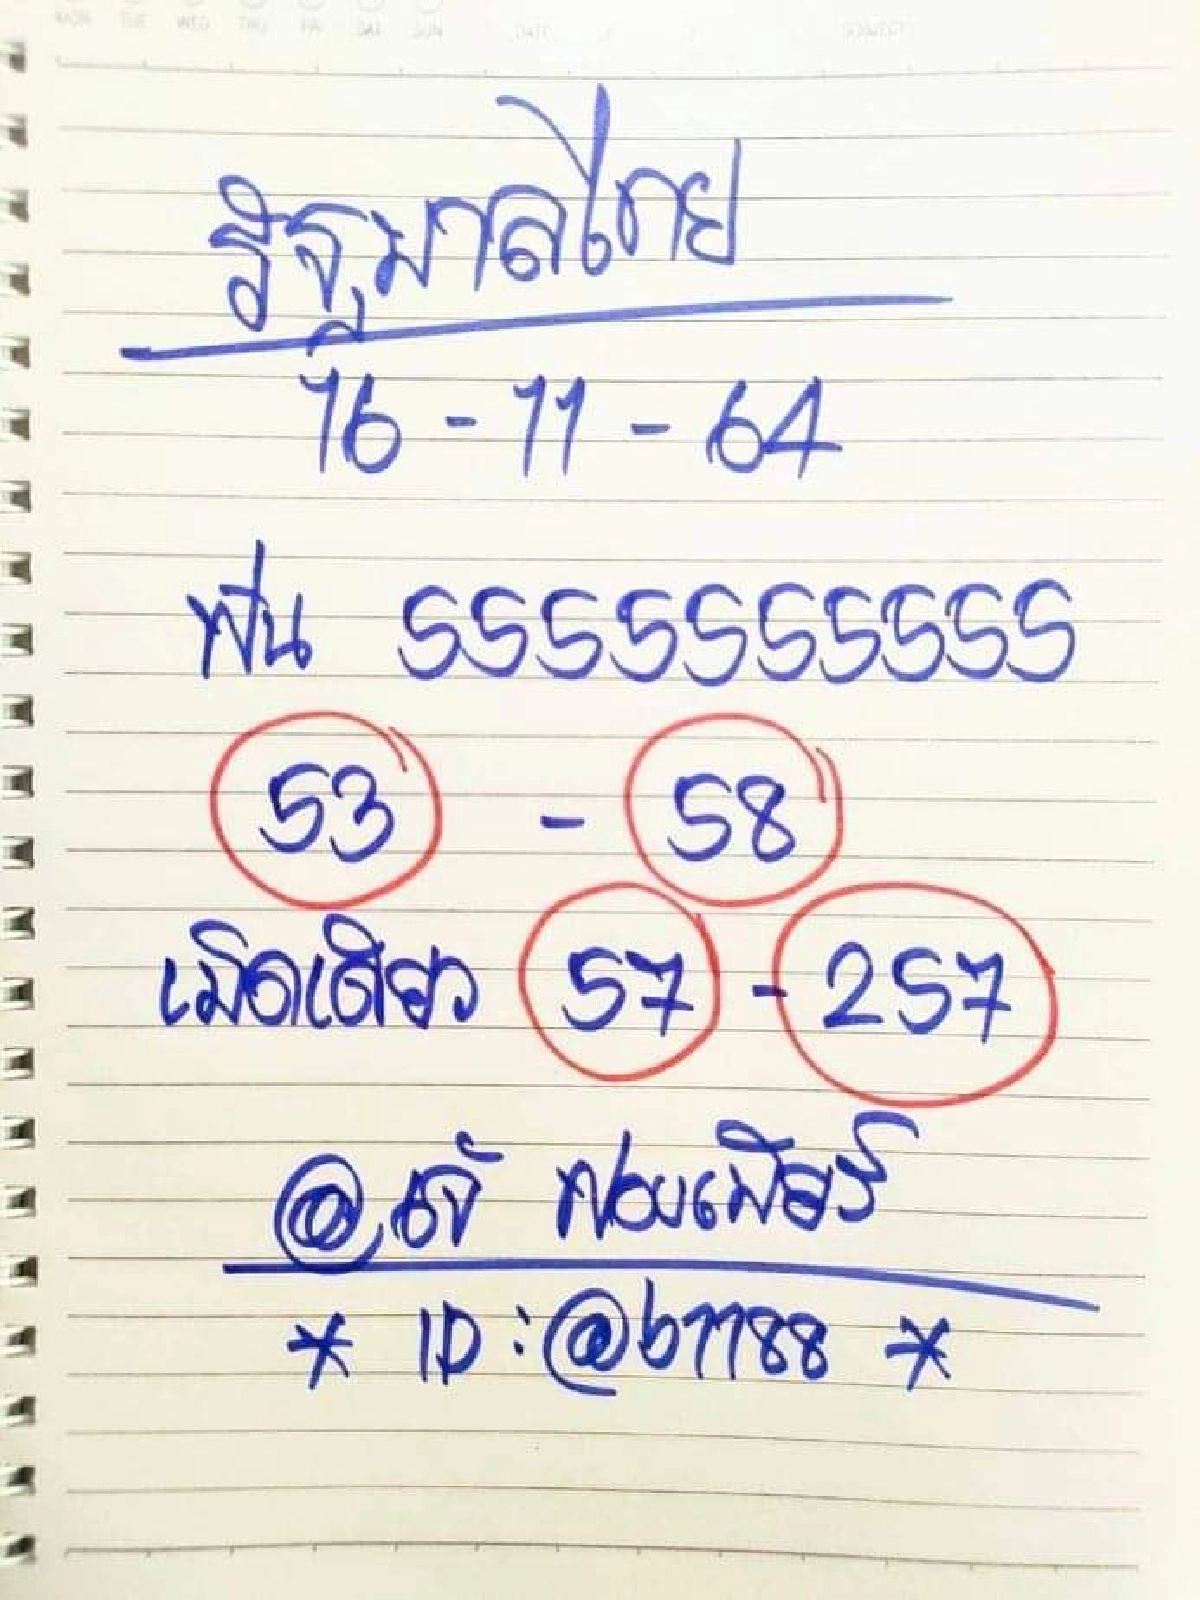 MON TUE WED THU FRI SAT SUN
รัฐบาลไทย
16 - 11 - 64
ฟัน 5555555555
53 - 58
เม็ดเดียว 57 - 257
@เจ๊ ฟองเบียร์
* ID : @b1188 *